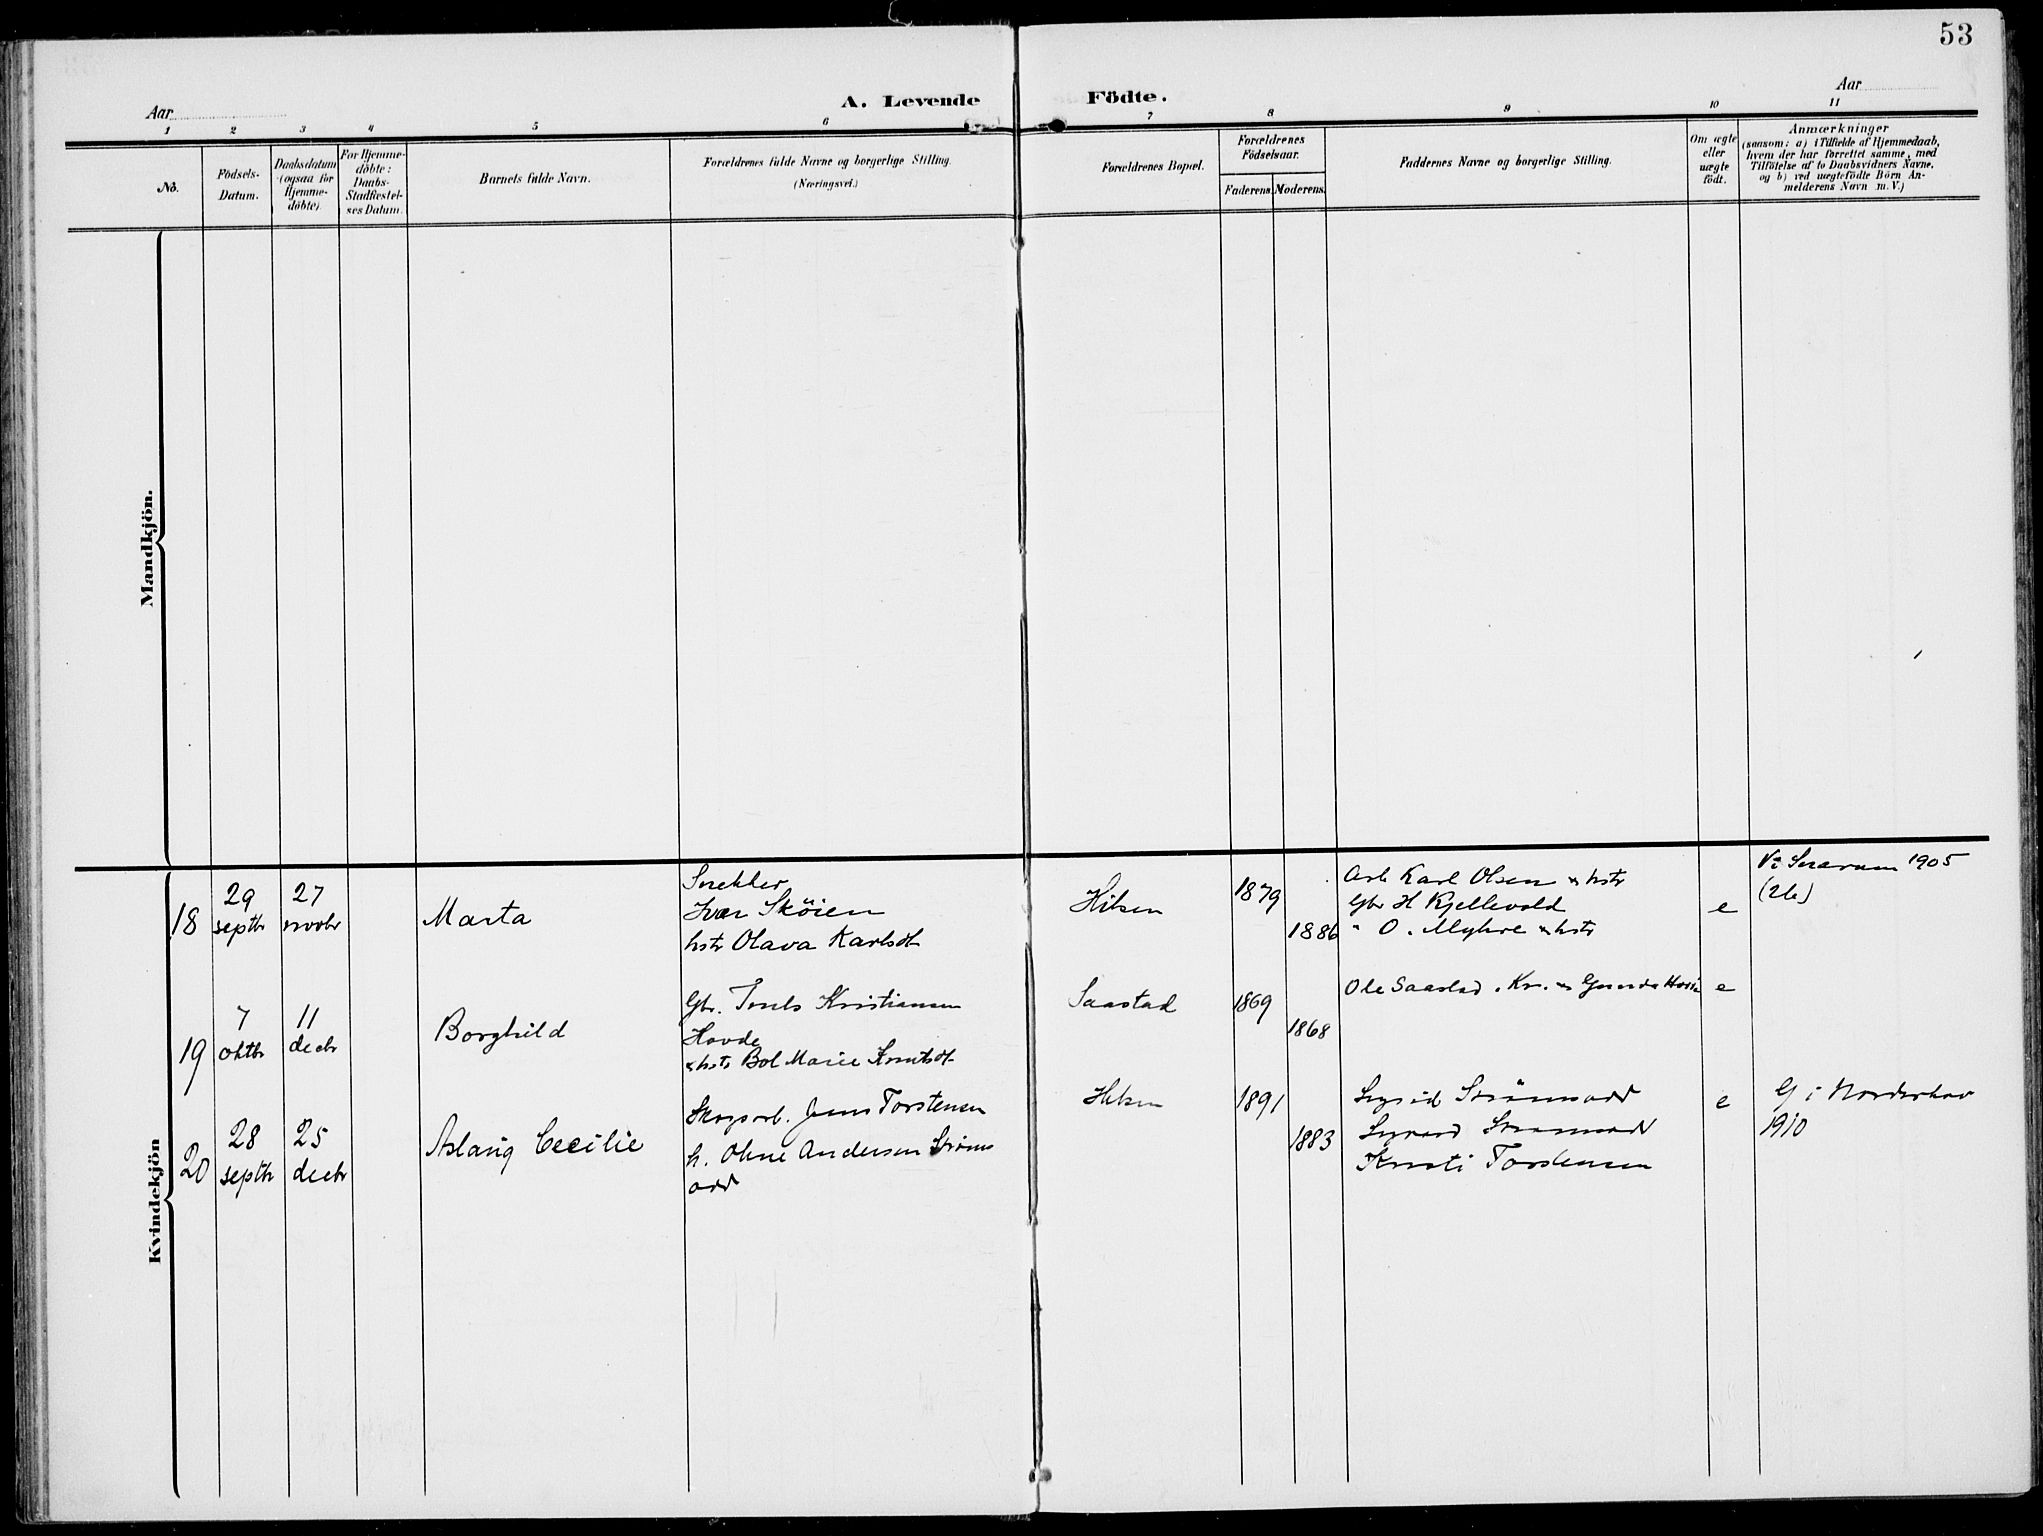 53
A. Levende Födte.
Aar
Aar
1 2 3 4 5 6 7 8 9 10 11
No.
Födsels-
Datum.
Daabsdatum
(ogsaa for
Hjemme-
döbte)
For Hjemme-
döbte:
Daabs-
Stadfæstel-
ses Datum.
Barnets fulde Navn.
Forældrenes fulde Navne og borgerlige Stilling.
(Næringsvei.)
Forældrenes Bopæl.
Forældrenes
Födselsaar.
Faderens.
Moderens.
Faddernes Navne og borgerlige Stilling.
Om ægte
eller
uægte
födt.
Anmærkninger
(saasom: a) i Tilfælde af Hjemmedaab,
hvem der har forrettet samme, med
Tilföielse af to Daabsvidners Navne,
og b) ved uægtefödte Börn An-
melderens Navn m. V.)
Mandkjön.
Kvindekjön
18
29
septbr
27
novbr
Marta
Snekker
Ivar Sköien
hstr Olava Karlsdt
Hilsen
1879
1886
Arb Karl Olsen & hstr
Gbr H Kjellevold
" O. Myhre & hstr
e
Vi Snarum 1905
19
7
oktbr
11
decbr
Borghild
Gbr. Kristiansen
Hovde
& hstr Bol Marie Knutsdt
Saastad
1869
1868
Ole Saastad, Kr. & Gunda
e
20
28
septbr
25
decbr
Aslaug Cecilie
Skogsarb. Jens Torstensen
h. Oline Andersen Ströms
odd
Hilsen
1891
1883
Sigrid Strömsodd
Strømsodd
Kristi Torstensen
e
G i Norderhov
1910